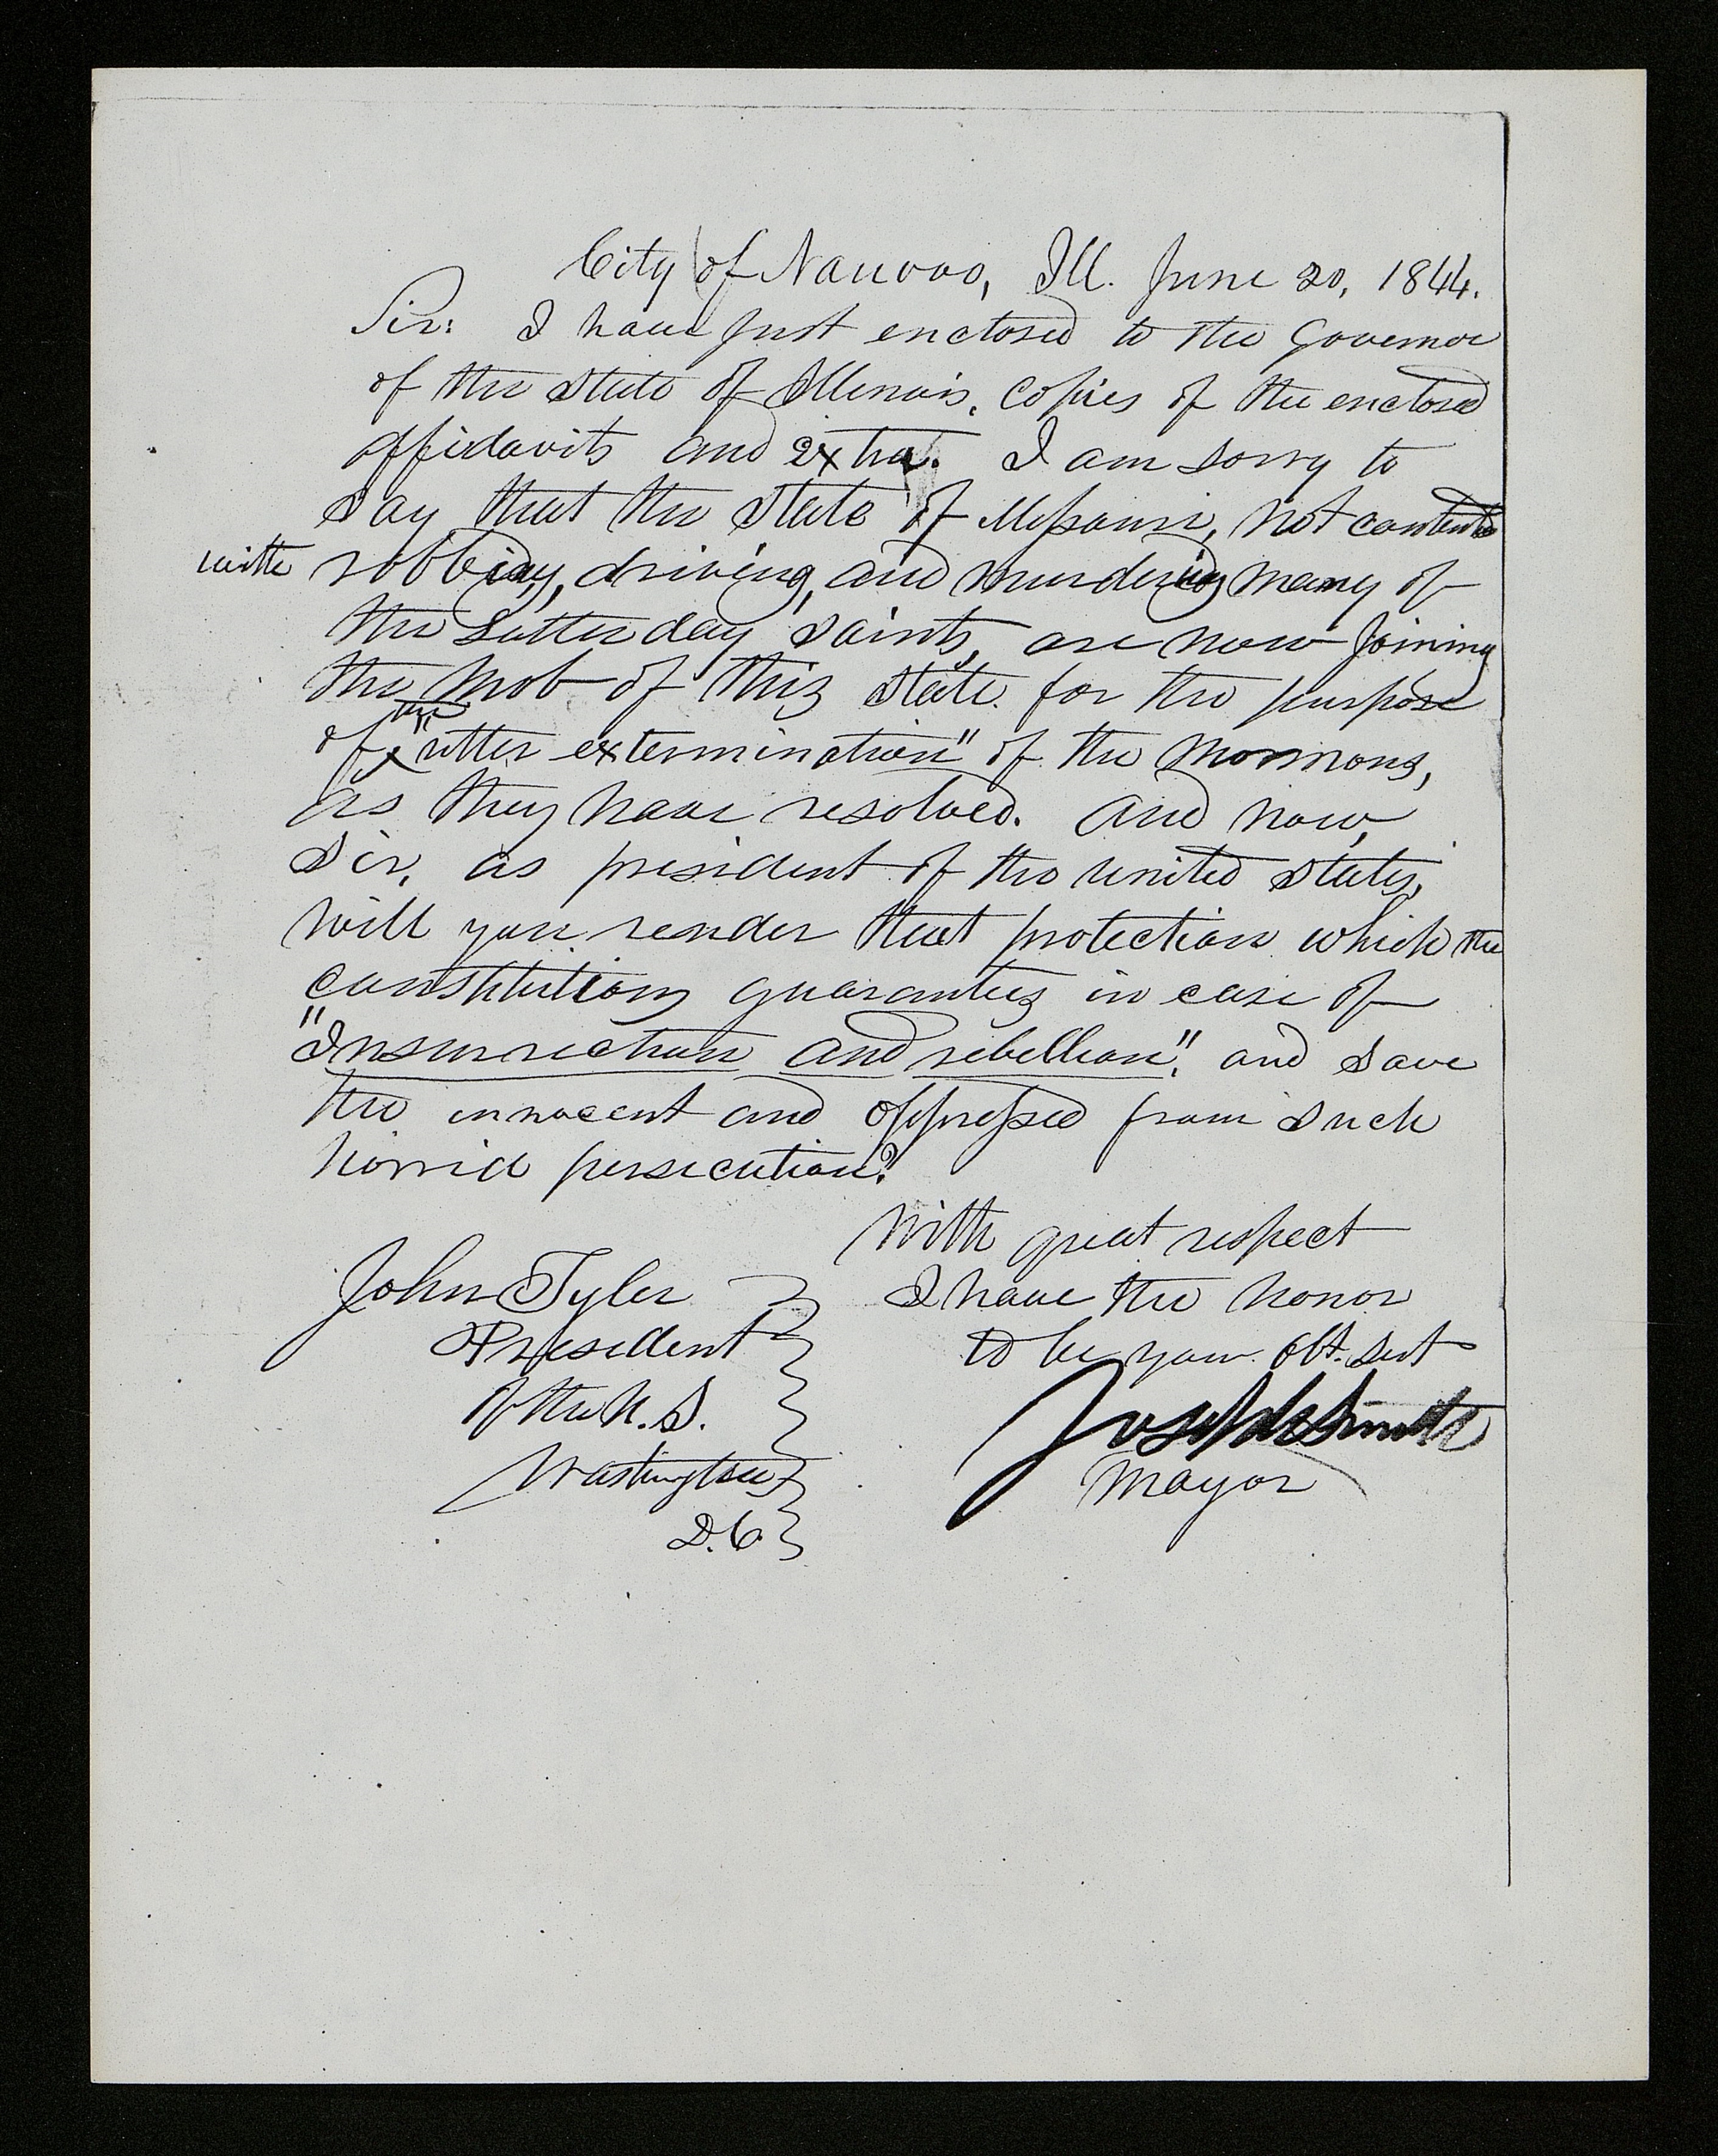 City of Nauvoo, Ill. June 20, 1844.
Sir: I have just enclosed to the Governor
of the State of Illinois, copies of the enclosed
affidavits and extra. I am sorry to
say that the State of Missouri, not contented
with robbing, driving, and murdering many of
the Latter day saints, are now joining
the mob of this state for the purpose
of the "utter extermination" of the Mormons,
as they have resolved. And now,
Sir, as president of the United States,
will you render that protection which the
constitution guarantees in case of
"Insurrection and rebellion", and save
the innocent and oppressed from such
horrid persecution?
With great respect
I have the honor
to be your obt. svt
Joseph Smith
Mayor
John Tyler
President
Of the U.S.
Washington
D.C.